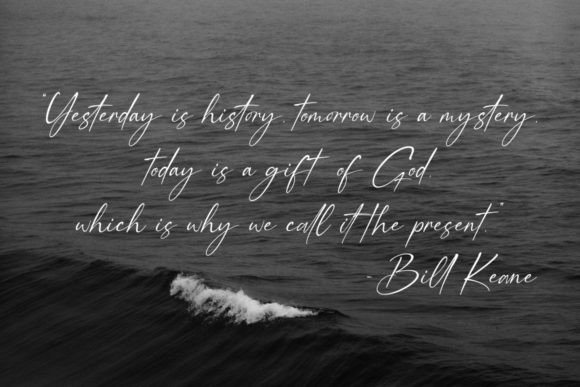 "Yesterday is history, tomorrow is a mystery,
today is a gift of God,
which is why we call it the present."
- Bill Keane